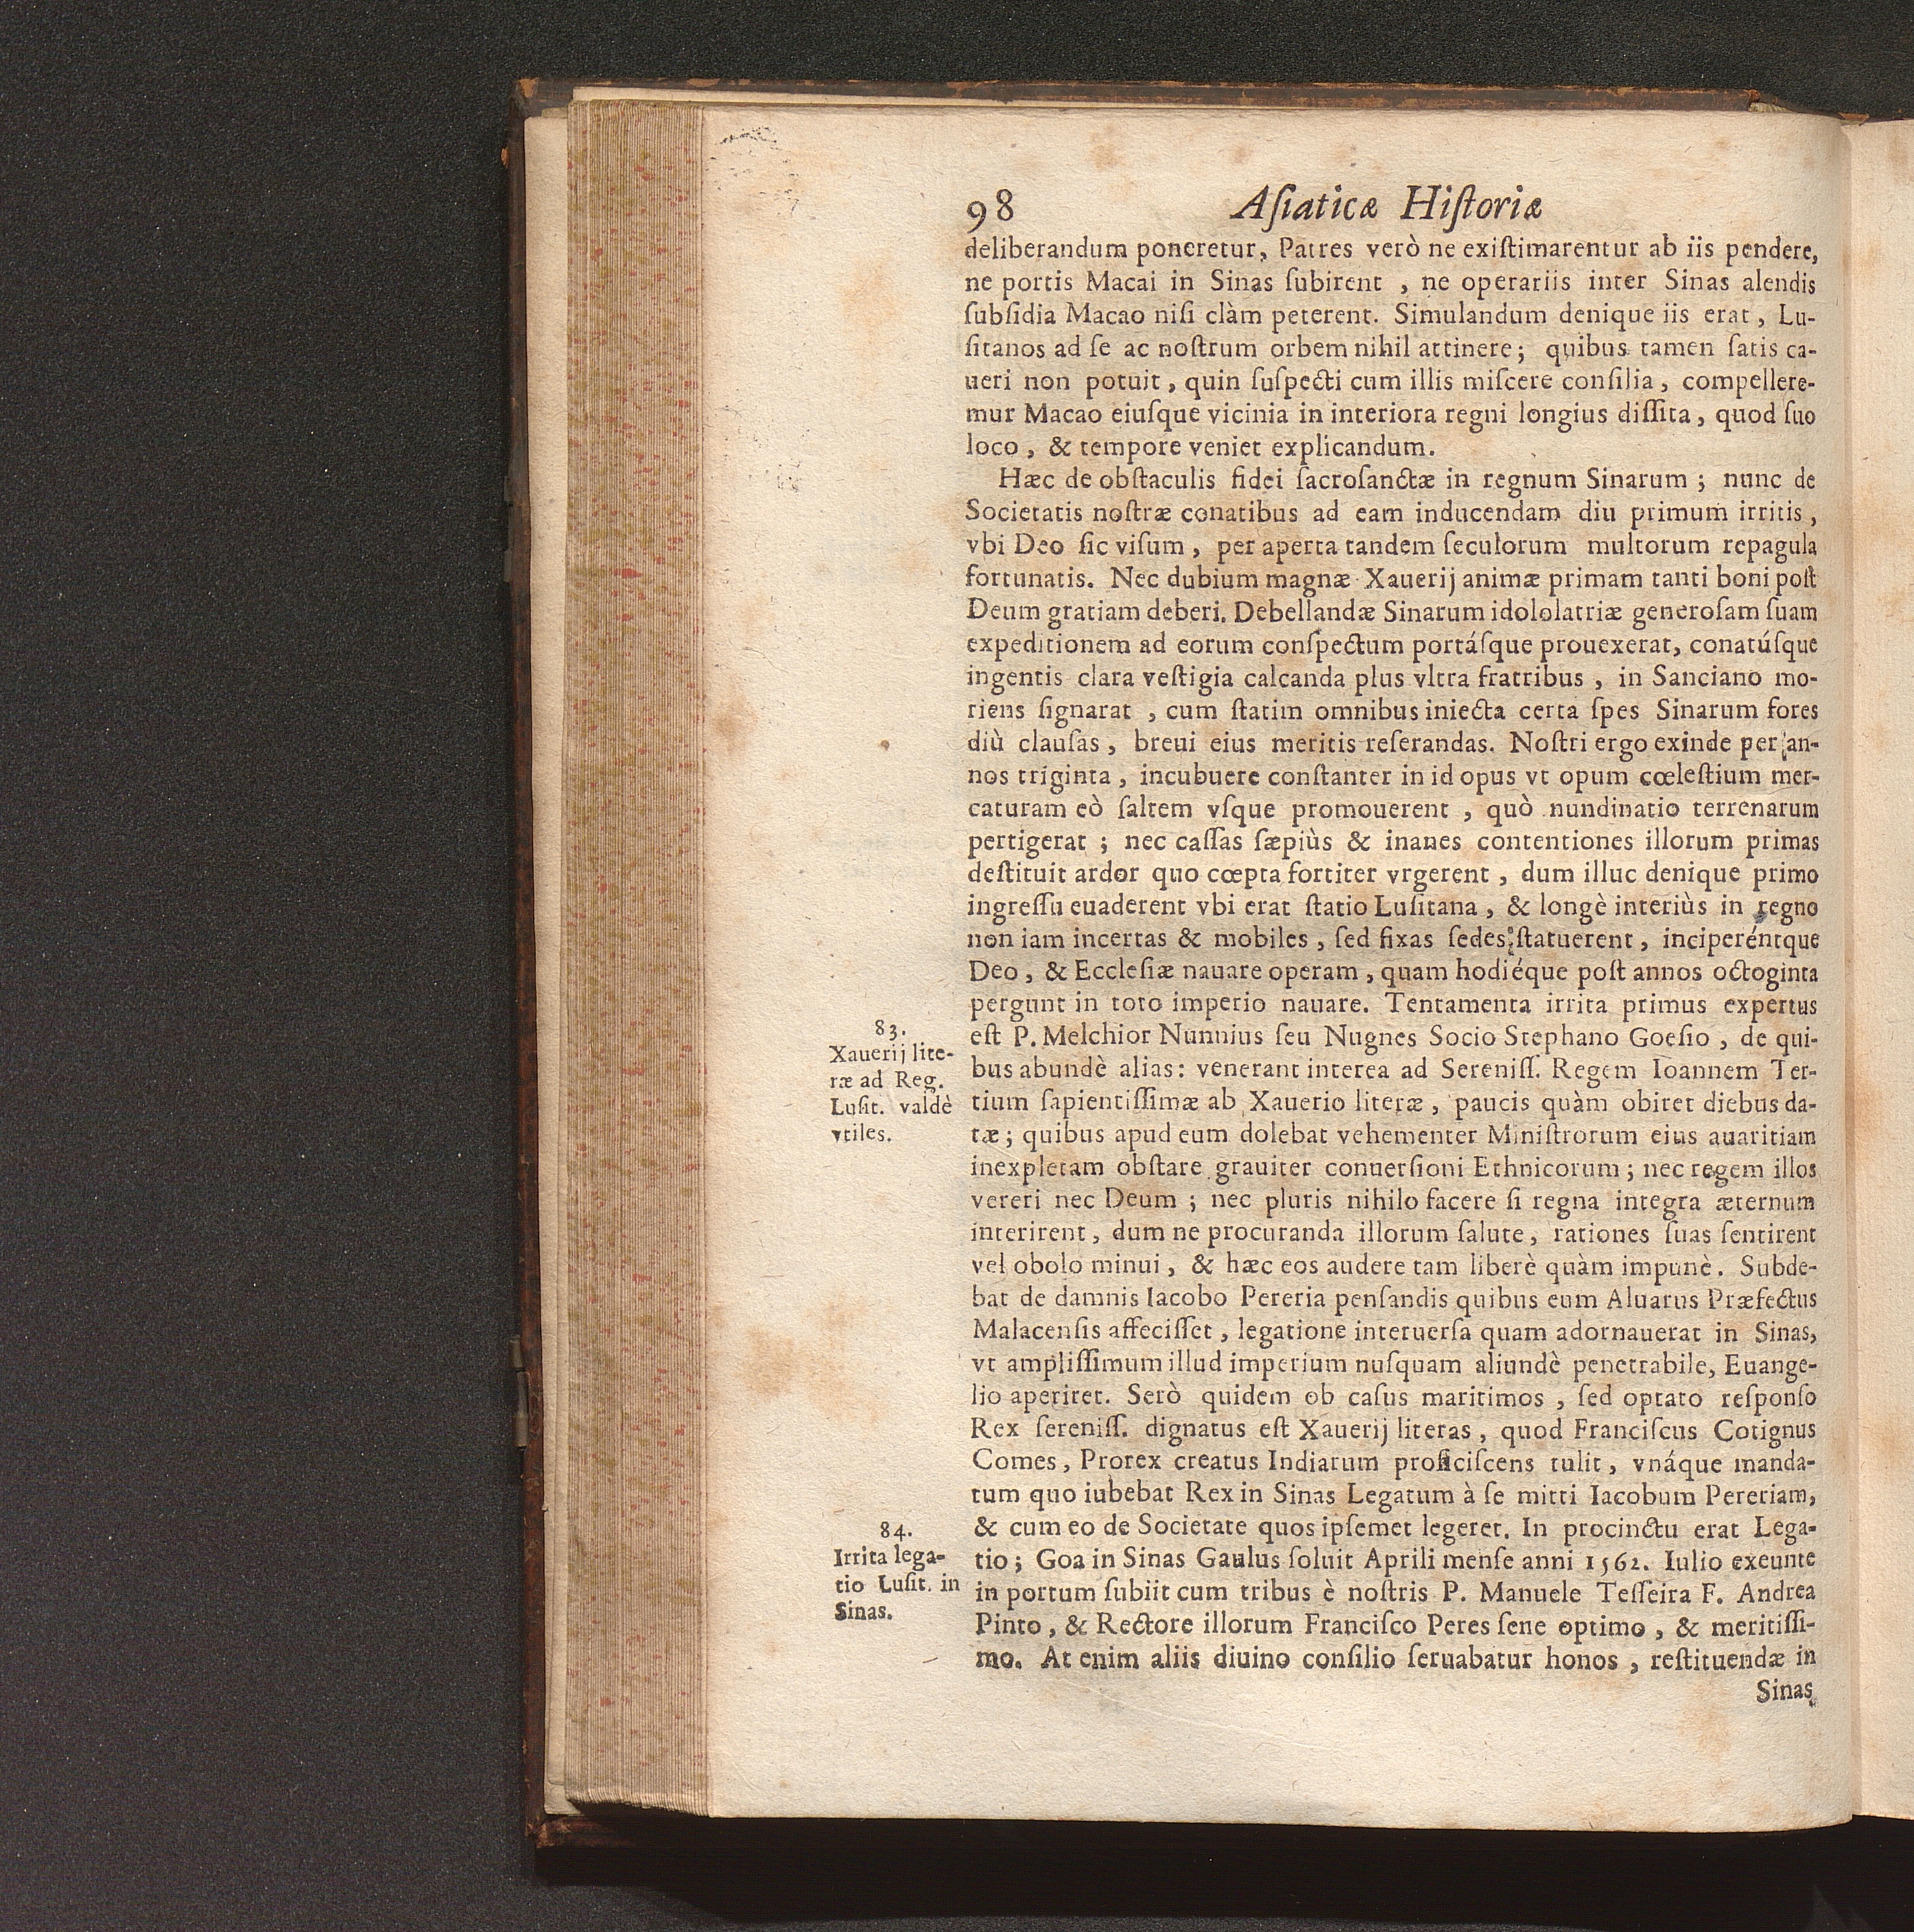 98 Aſiaticæ Hiſtoriæ
deliberandum poneretur, Patres verò ne exiſtimarentur ab iis pendere,
ne portis Macai in Sinas ſubirent , ne operariis inter Sinas alendis
ſubſidia Macao niſi clàm peterent. Simulandum denique iis erat, Lu-
ſitanos ad ſe ac noſtrum orbem nihil attinere; quibus tamen ſatis ca-
ueri non potuit, quin ſuſpecti cum illis miſcere conſilia, compellere-
mur Macao eiuſque vicinia in interiora regni longius diſſita, quod ſuo
loco, & tempore veniet explicandum.
Hæc de obſtaculis fidei ſacroſanctæ in regnum Sinarum ; nunc de
Societatis noſtræ conatibus ad eam inducendam diu primum irritis,
vbi Deo ſic viſum, per aperta tandem ſeculorum multorum repagula
fortunatis. Nec dubium magnæ Xauerij animæ primam tanti boni poſt
Deum gratiam deberi. Debellandæ Sinarum idololatriæ generoſam ſuam
expeditionem ad eorum conſpectum portáſque prouexerat, conatúſque
ingentis clara veſtigia calcanda plus vltra fratribus , in Sanciano mo-
riens ſignarat , cum ſtatim omnibus iniecta certa ſpes Sinarum fores
diù clauſas, breui eius meritis reſerandas. Noſtri ergo exinde per an-
nos triginta, incubuere conſtanter in id opus vt opum cœleſtium mer-
caturam eò ſaltem vſque promouerent , quò nundinatio terrenarum
pertigerat ; nec caſſas ſæpiùs & inanes contentiones illorum primas
deſtituit ardor quo cœpta fortiter vrgerent, dum illuc denique primo
ingreſſu euaderent vbi erat ſtatio Luſitana, & longè interiùs in regno
non iam incertas & mobiles, ſed fixas ſedes ſtatuerent, inciperéntque
Deo, & Eccleſiæ nauare operam, quam hodiéque poſt annos octoginta
pergunt in toto imperio nauare. Tentamenta irrita primus expertus
83.
Xauerij lite-
ræ ad Reg.
Luſit. valdè
vtiles.
eſt P. Melchior Nunnius ſeu Nugnes Socio Stephano Goeſio, de qui-
bus abundè alias: venerant interea ad Sereniſſ. Regem Ioannem Ter-
tium ſapientiſſimæ ab Xauerio literæ, paucis quàm obiret diebus da-
tæ; quibus apud eum dolebat vehementer Miniſtrorum eius auaritiam
inexpletam obſtare grauiter conuerſioni Ethnicorum; nec regem illos
vereri nec Deum ; nec pluris nihilo facere ſi regna integra æternum
interirent, dum ne procuranda illorum ſalute, rationes ſuas ſentirent
vel obolo minui, & hæc eos audere tam liberè quàm impunè. Subde-
bat de damnis Iacobo Pereria penſandis quibus eum Aluarus Præfectus
Malacenſis affeciſſet, legatione interuerſa quam adornauerat in Sinas,
vt ampliſſimum illud imperium nuſquam aliundè penetrabile, Euange-
lio aperiret. Serò quidem ob caſus maritimos , ſed optato reſponſo
Rex ſereniſſ. dignatus eſt Xauerij literas, quod Franciſcus Cotignus
Comes, Prorex creatus Indiarum proficiſcens tulit, vnáque manda-
tum quo iubebat Rex in Sinas Legatum à ſe mitti Iacobum Pereriam,
& cum eo de Societate quos ipſemet legeret. In procinctu erat Lega-
84.
Irrita lega-
tio Luſit. in
Sinas.
tio; Goa in Sinas Gaulus ſoluit Aprili menſe anni 1562. Iulio exeunte
in portum ſubiit cum tribus è noſtris P. Manuele Teſſeira F. Andrea
Pinto, & Rectore illorum Franciſco Peres ſene optimo, & meritiſſi-
mo. At enim aliis diuino conſilio ſeruabatur honos, reſtituendæ in
Sinas